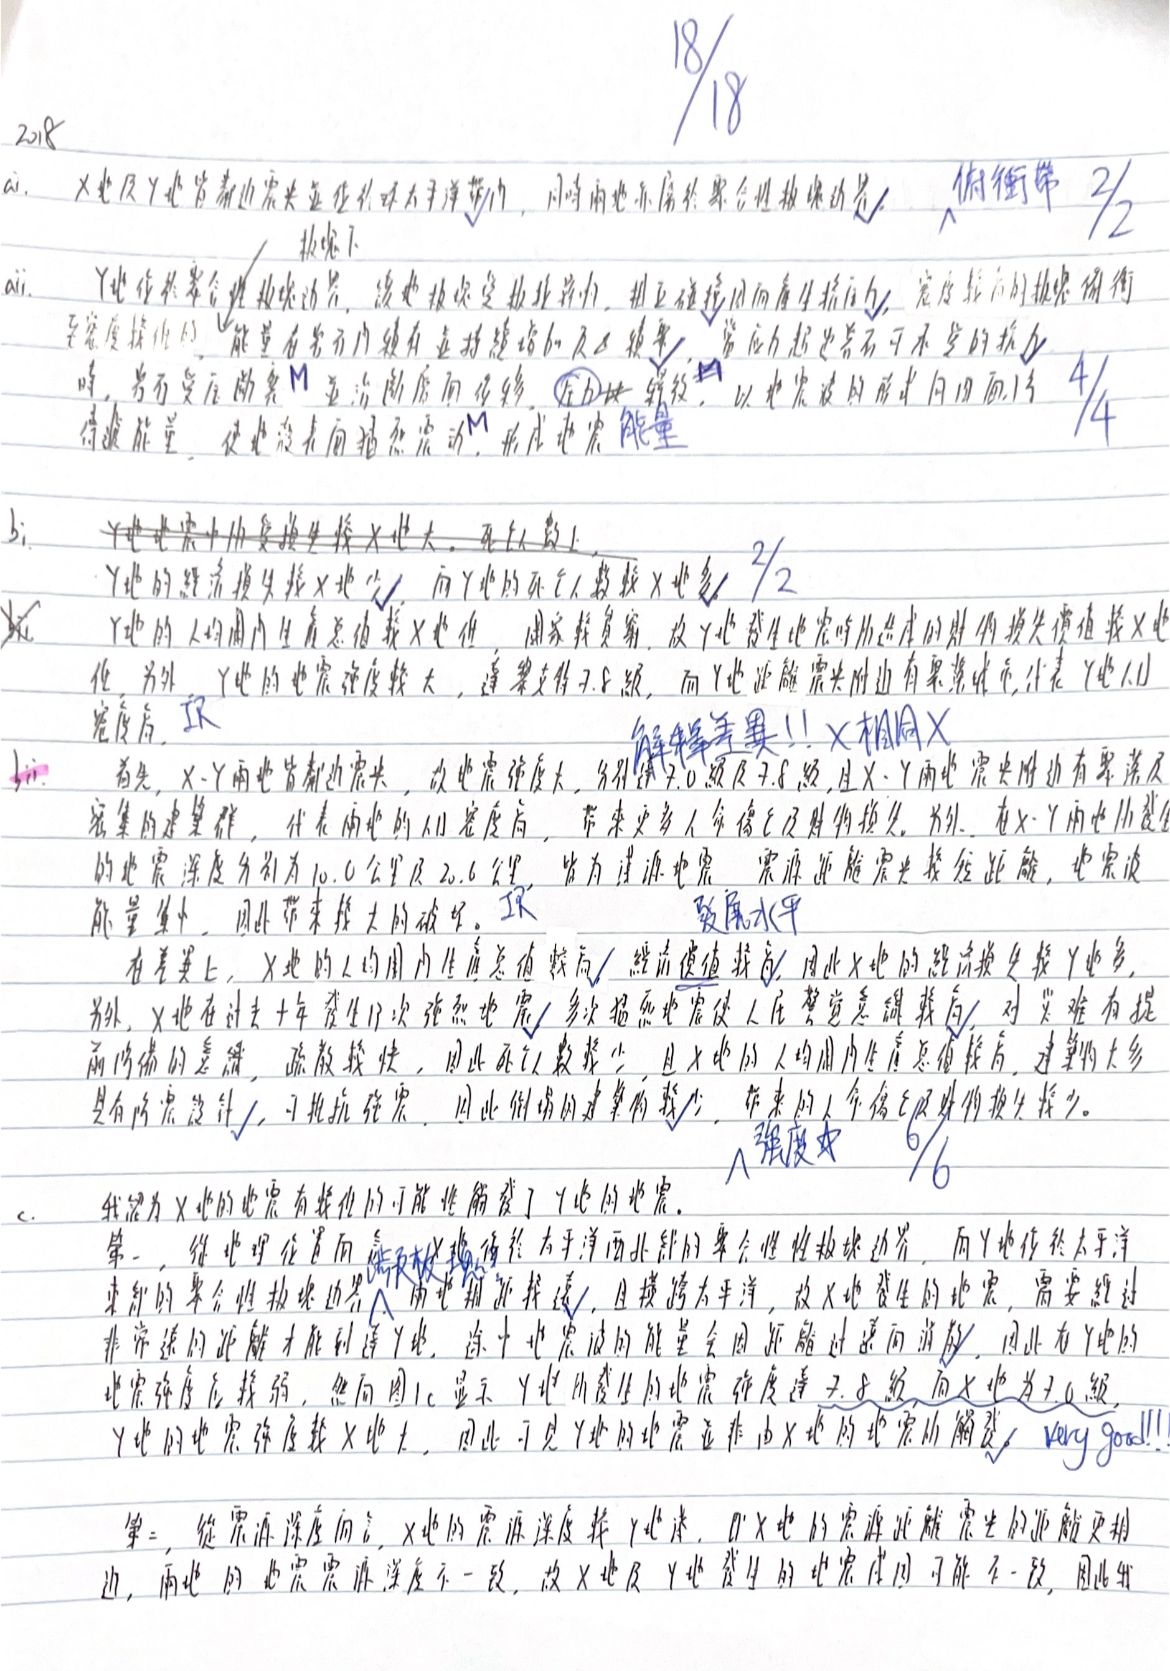 18/18
2018
ai. X地及Y地皆鄰近震央並位於環太平洋帶內，同時兩地亦屬於聚合性板塊边界。 ^俯衝帶 2/2
板塊下
aii. Y地位於聚合性板塊边界，該地板塊受板块移动，相互碰撞因而產生擠压力，密度較高的板塊俯衝
至密度較低的，能量在岩石內積存並持續增加及累積，當应力超过岩石可承受的抗力
時，岩石受压断裂M並沿断层面位移，压力釋放，以地震波的形式向四面八方 4/4
傳遞能量，使地殼表面猛烈震动M，形成地震 能量
bi. Y地地震中所受損失較X地大。死亡人數上，
Y地的經济損失較X地少，而Y地的死亡人数較X地多。 2/2
bii Y地的人均国内生產总值較X地低，国家較貧窮，故Y地發生地震時所造成的財物損失價值較X地
低，另外，Y地的地震強度較大，達黎克特7.8級，而Y地距離震央附近有聚落城市，代表Y地人口
密度高， IR
解釋差異!! X相同X
bii. 首先，X、Y兩地皆鄰近震央，故地震強度大，分別達7.0級及7.8級，且X、Y兩地震央附近有聚落及
密集的建築群，代表兩地的人口密度高，帶來更多人命傷亡及財物損失。另外，在X、Y兩地所發生
的地震深度分別為10.0公里及20.6公里，皆为淺源地震，震源距離震央較短距離，地震波
能量集中，因此帶來較大的破坏。 IR 發展水平
在差異上，X地的人均国内生產总值較高，經济價值較高，因此X地的經济損失較Y地多，
另外，X地在过去十年發生13次強烈地震，多次猛烈地震使人民警覺意識較高，对災难有提
前防備的意識，疏散較快，因此死亡人数較少，且X地的人均国内生產总值較高，建築物大多
具有防震設計，可抵抗強震，因此倒塌的建築物較少，帶來的人命傷亡及財物損失較少。
^強度大 6/6
c. 我認为X地的地震有較低的可能性觸發了Y地的地震。
第一，從地理位置而言，X地位於太平洋西北部的聚合性性板塊边界，而Y地位於太平洋
東部的聚合性板塊边界，兩地相距較遠，且橫跨太平洋，故X地發生的地震，需要經过
非常遠的距離才能到達Y地，途中地震波的能量会因距離过遠而消散，因此在Y地的
地震強度应較弱，然而图1c显示Y地所發生的地震強度達7.8級，而X地为7.0級，
Y地的地震強度較X地大，因此可見Y地的地震並非由X地的地震所觸發。 very good!!!
第二，從震源深度而言，X地的震源深度較Y地淺，即X地的震源距離震央的距離更相
近，兩地的地震震源深度不一致，故X地及Y地發生的地震成因可能不一致，因此我